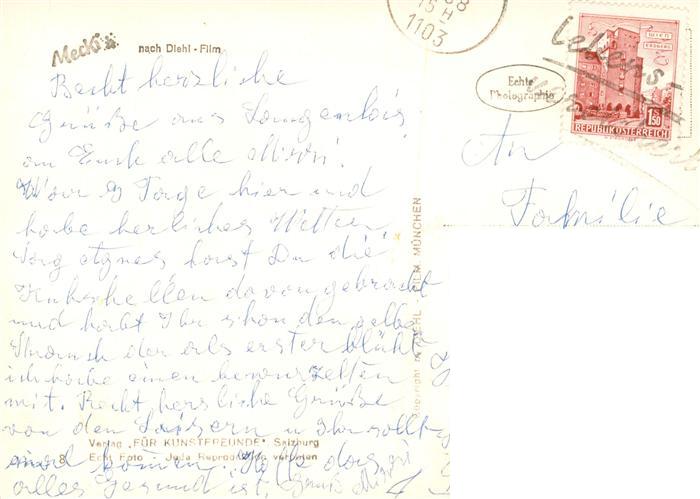 Mecki nach Diehl-Film
Recht herzliche
Grüße aus Langenlois
an Euch alle Mirzi.
War 3 Tage hier und
habe herliches Wetter
Sag Agnes hast Du die
Kuhschellen davongebracht
und habt Ihr schon den gelben
Strauch der als erster blüht
ich habe einen bewurzelten
mit. Recht herzliche Grüße
von den u Ihr sollt
mal kommen. Hoffe das
alles Gesund ist.
Verlag „FÜR KUNSTFREUNDE" Salzburg
8 Echt Foto - Jede Reproduktion verboten
Copyright by DIEHL-FILM, MÜNCHEN
1103
Echte
Photographie
WIEN
ERDBERG
1.50
REPUBLIK ÖSTERREICH
An
Familie